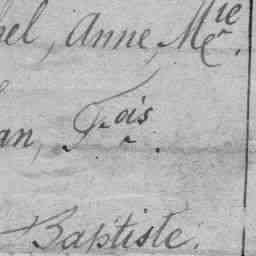 hel, Anne, Mie.
an, Fois.
Baptiste.